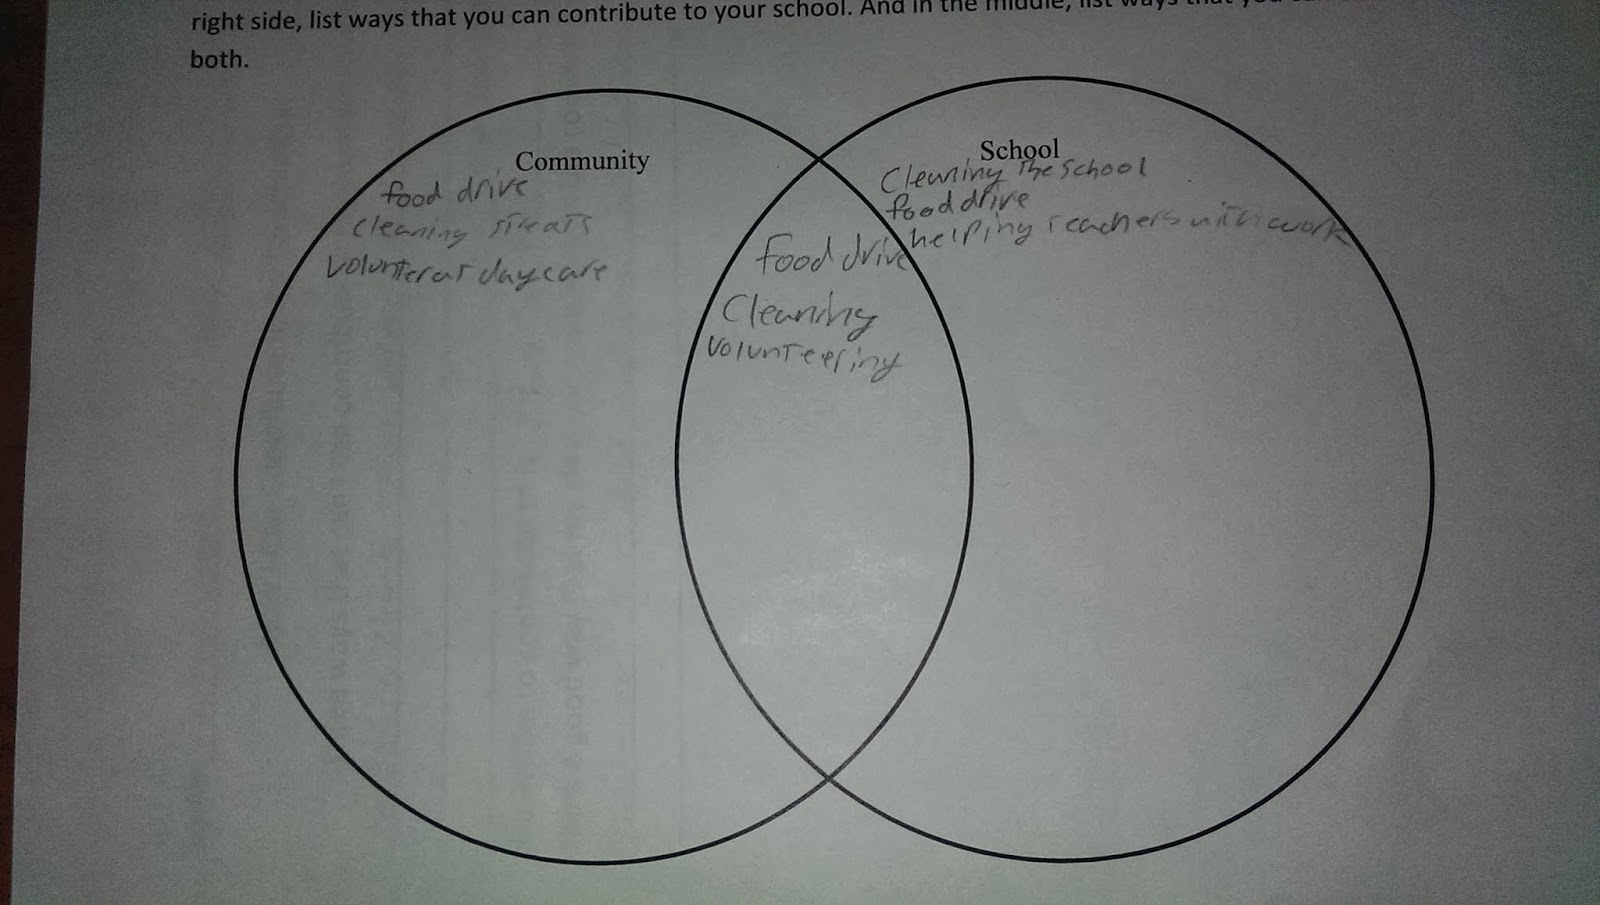 right side, list ways that you can contribute to your school. And in the middle, list ways that you
both.
Community
food drive
cleaning streats
volunteer at daycare
School
Cleaning The School
food drive
helping teachers with work
food drive
Cleaning
volunteering